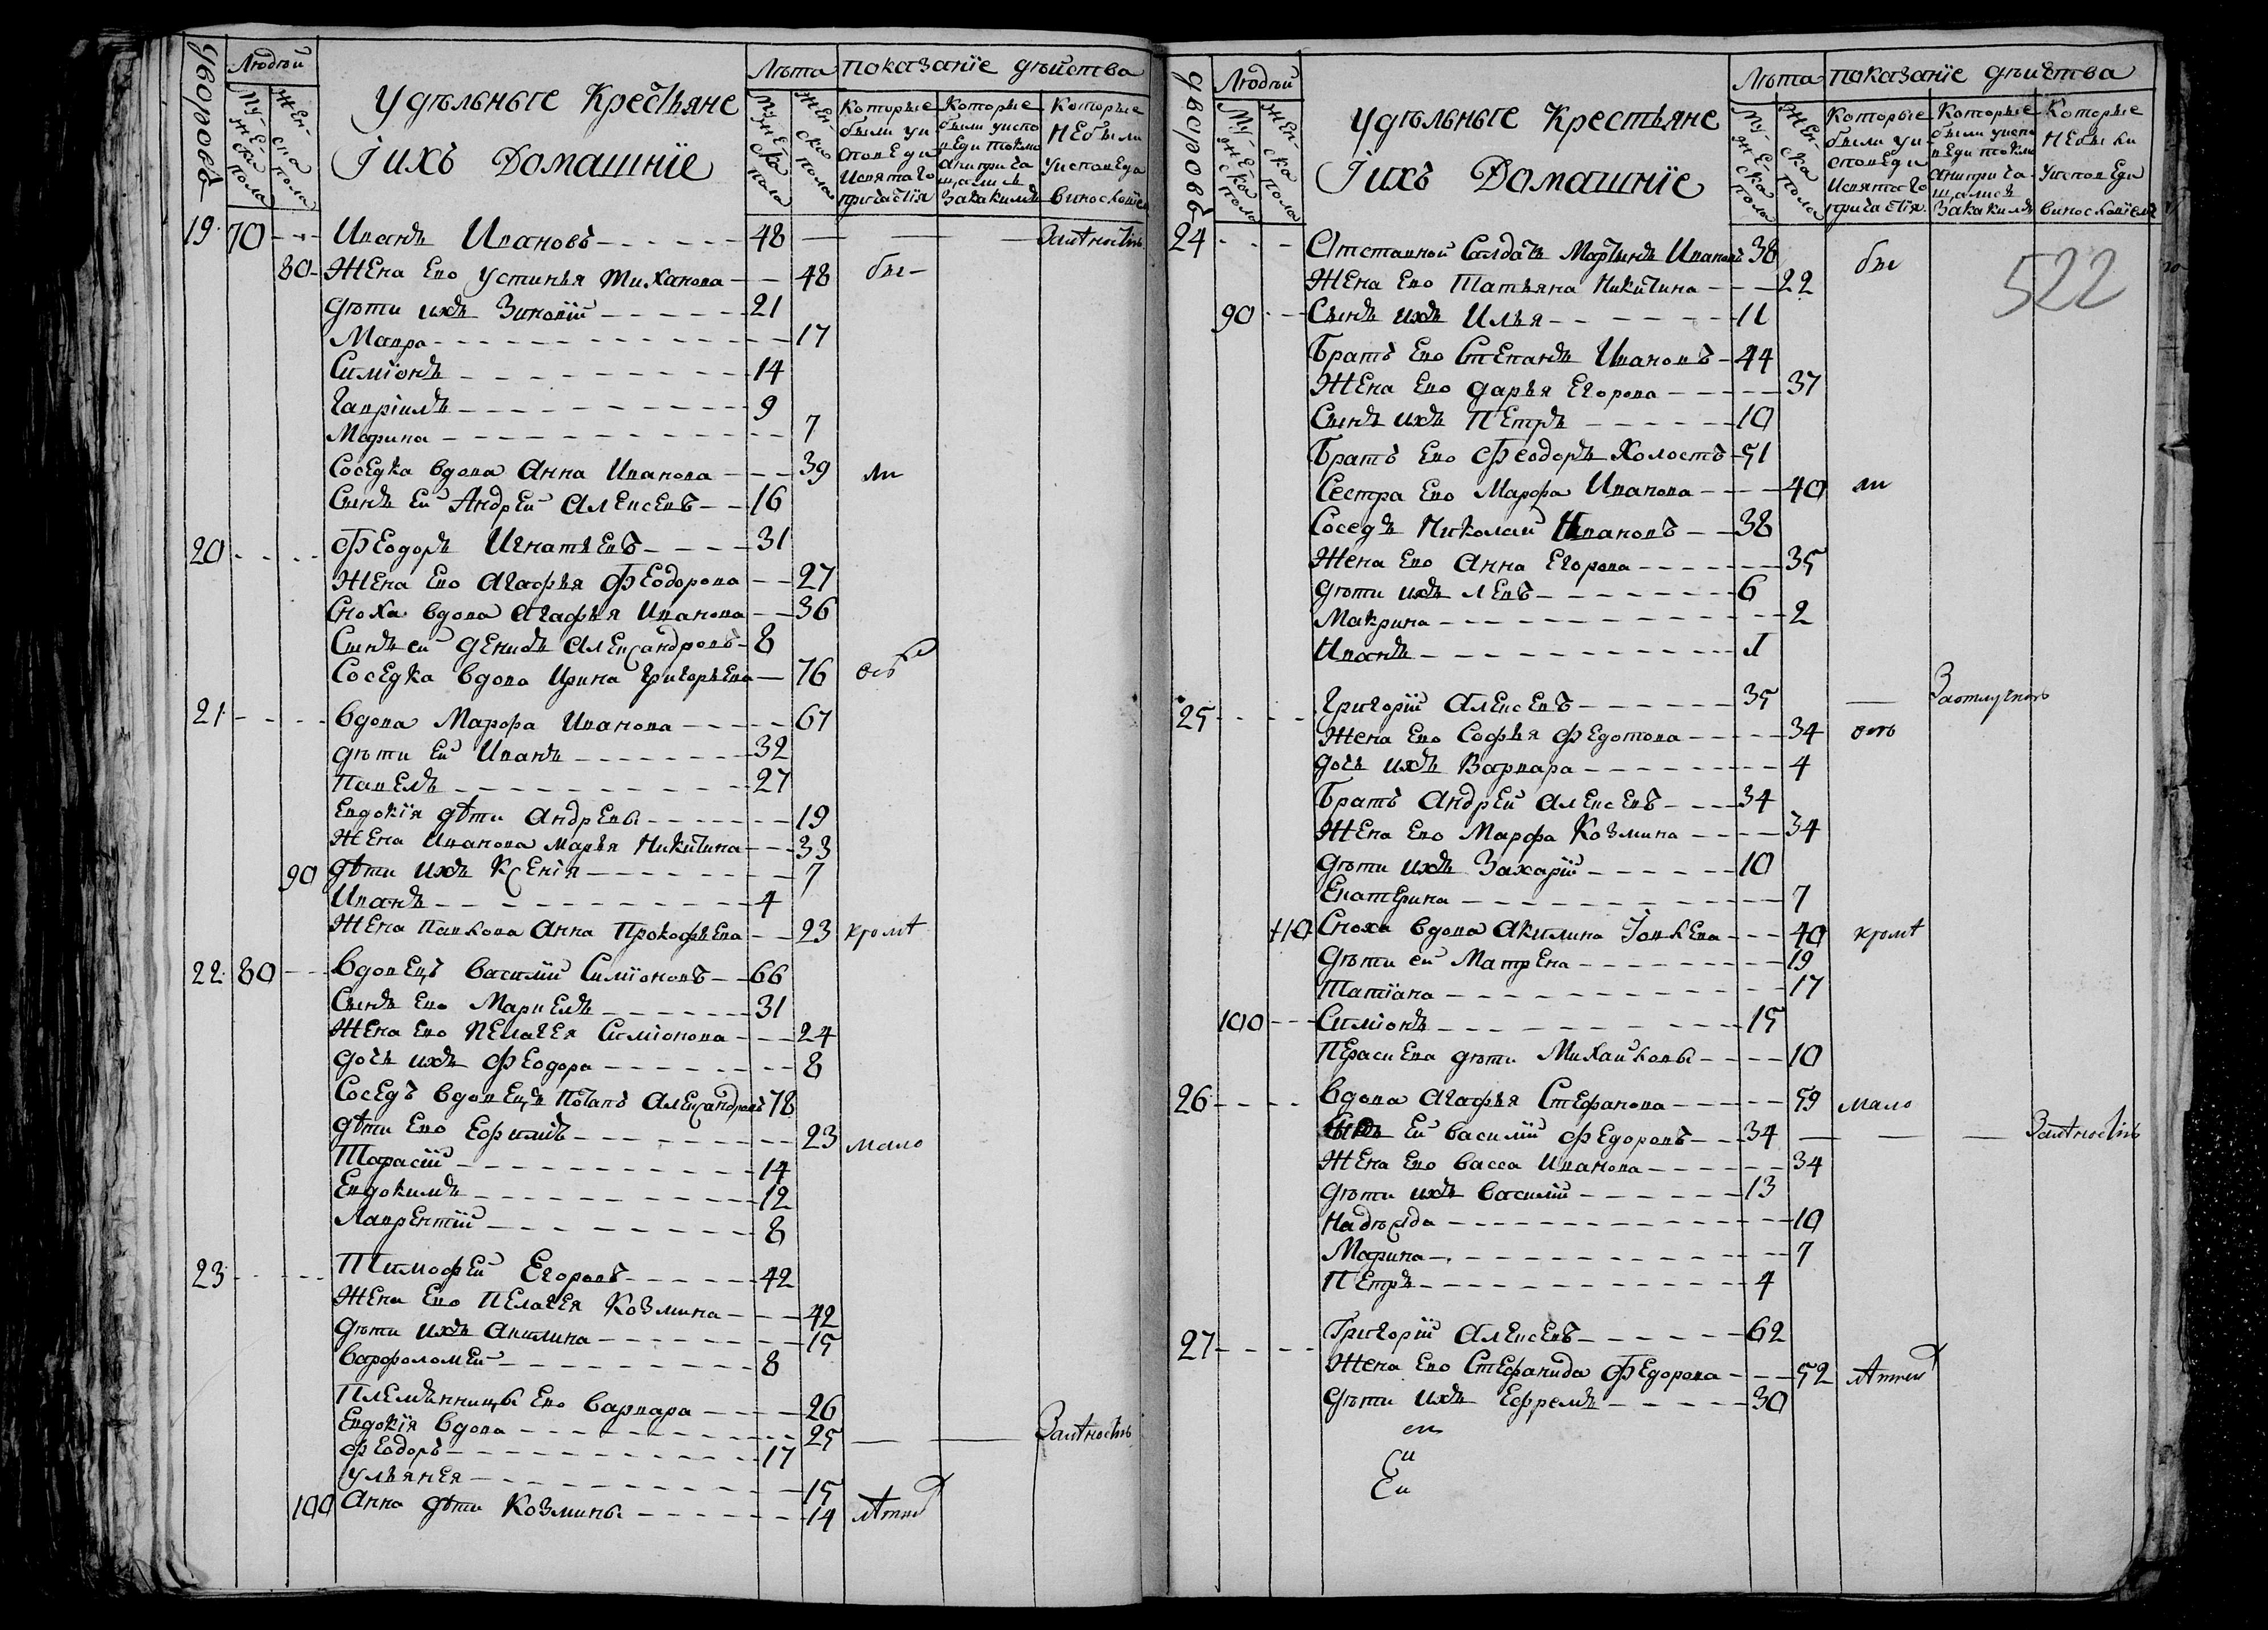 дворовъ
Людей
Мужеска пола
Женска пола
Удѣльные Крестьяне
Iихъ Домашнїе
Лѣта
Мужеска пола
Женска пола
показанїе дѣйства
Которые были у исповеди и святаго причастїя
Которые были у исповеди токмо а не причащались
Которые не были у исповеди
19 70 Иванъ Ивановъ 48
80 Жена Ево Устинья Тиханова 48 бы
дѣти ихъ Зиновiй 21
Мавра 17
Симiонъ 14
Гаврiилъ 9
Марина 7
Соседка вдова Анна Иванова 39 ли
Сынъ Ей Андрей Алексеевъ 16
20 Феодоръ Игнатьевъ 31
Жена Ево Агафья Феодорова 27
Сноха вдова Агафья Иванова 36
Сынъ ей Денисъ Александровъ 8
Соседка вдова Ирина Григорьева 76
21 вдова Марфа Иванова 67
дѣти Ей Иванъ 32
Павелъ 27
Евдокїя дѣти Андреевы 19
Жена Иванова Марья Никитина 33
90 дѣти ихъ Ксенiя 7
Иванъ 4
Жена Павлова Анна Прокофьева 23 кромѣ
22 80 вдовецъ василiй Симiоновъ 66
Сынъ Ево Маркелъ 31
Жена Ево Пелагея Симiонова 24
дочь ихъ Феодора 8
Соседъ вдовецъ Потапъ Александровъ 78
дѣти Ево Ефимiъ 23 мало
Тарасiй 14
Евдокимъ 12
Лаврентiй 8
23 Тимофей Егоровъ 42
Жена Ево Пелагея Козмина 42
дѣти ихъ Акилина 15
варфоломей 8
Племѣнницы Ево варвара 26
Евдокїя вдова 25
Феодоръ 17
Ульянея 15
100 Анна дѣти Козмины 14 лѣтныхъ
дворовъ
Людей
Мужеска пола
Женска пола
Удѣльные Крестьяне
Iихъ Домашнїе
Лѣта
Мужеска пола
Женска пола
показанїе дѣйства
Которые были у исповеди и святаго причастїя
Которые были у исповеди токмо а не причащались
Которые не были у исповеди
522
24 Отставной Салдатъ Мартынъ Ивановъ 38 бы
Жена Ево Татьяна Никитина 22
90 Сынъ ихъ Илья 11
Братъ Ево Степанъ Ивановъ 44
Жена Ево Дарья Егорова 37
Сынъ ихъ Петръ 10
Братъ Ево Феодоръ Холостъ 51
Сестра Ево Марфа Иванова 40 ли
Соседъ Николай Ивановъ 38
Жена Ево Анна Егорова 35
дѣти ихъ Левъ 6
Макрина 2
Иванъ 1
25 Григорiй Алексеевъ 35 За отлучкою
Жена Ево Софья Федотова 34
дочь ихъ Варвара 4
Братъ Андрей Алексеевъ 34
Жена Ево Марфа Козмина 34
дѣти ихъ Захарiй 10
Екатерина 7
110 Сноха вдова Акилина Iовлева 40 кромѣ
дѣти ей Матрена 19
Татiана 17
100 Симiонъ 15
Параскева дѣти Михайловы 10
26 вдова Агафья Стефанова 59 мало
Сынъ Ей василiй Федоровъ 34
Жена Ево васса Иванова 34
дѣти ихъ василiй 13
Надежда 10
Марина 7
Петръ 4
27 Григорiй Алексеевъ 62
Жена Ево Стефанида Федорова 52 лѣтныхъ
дѣти ихъ Ефремъ 30